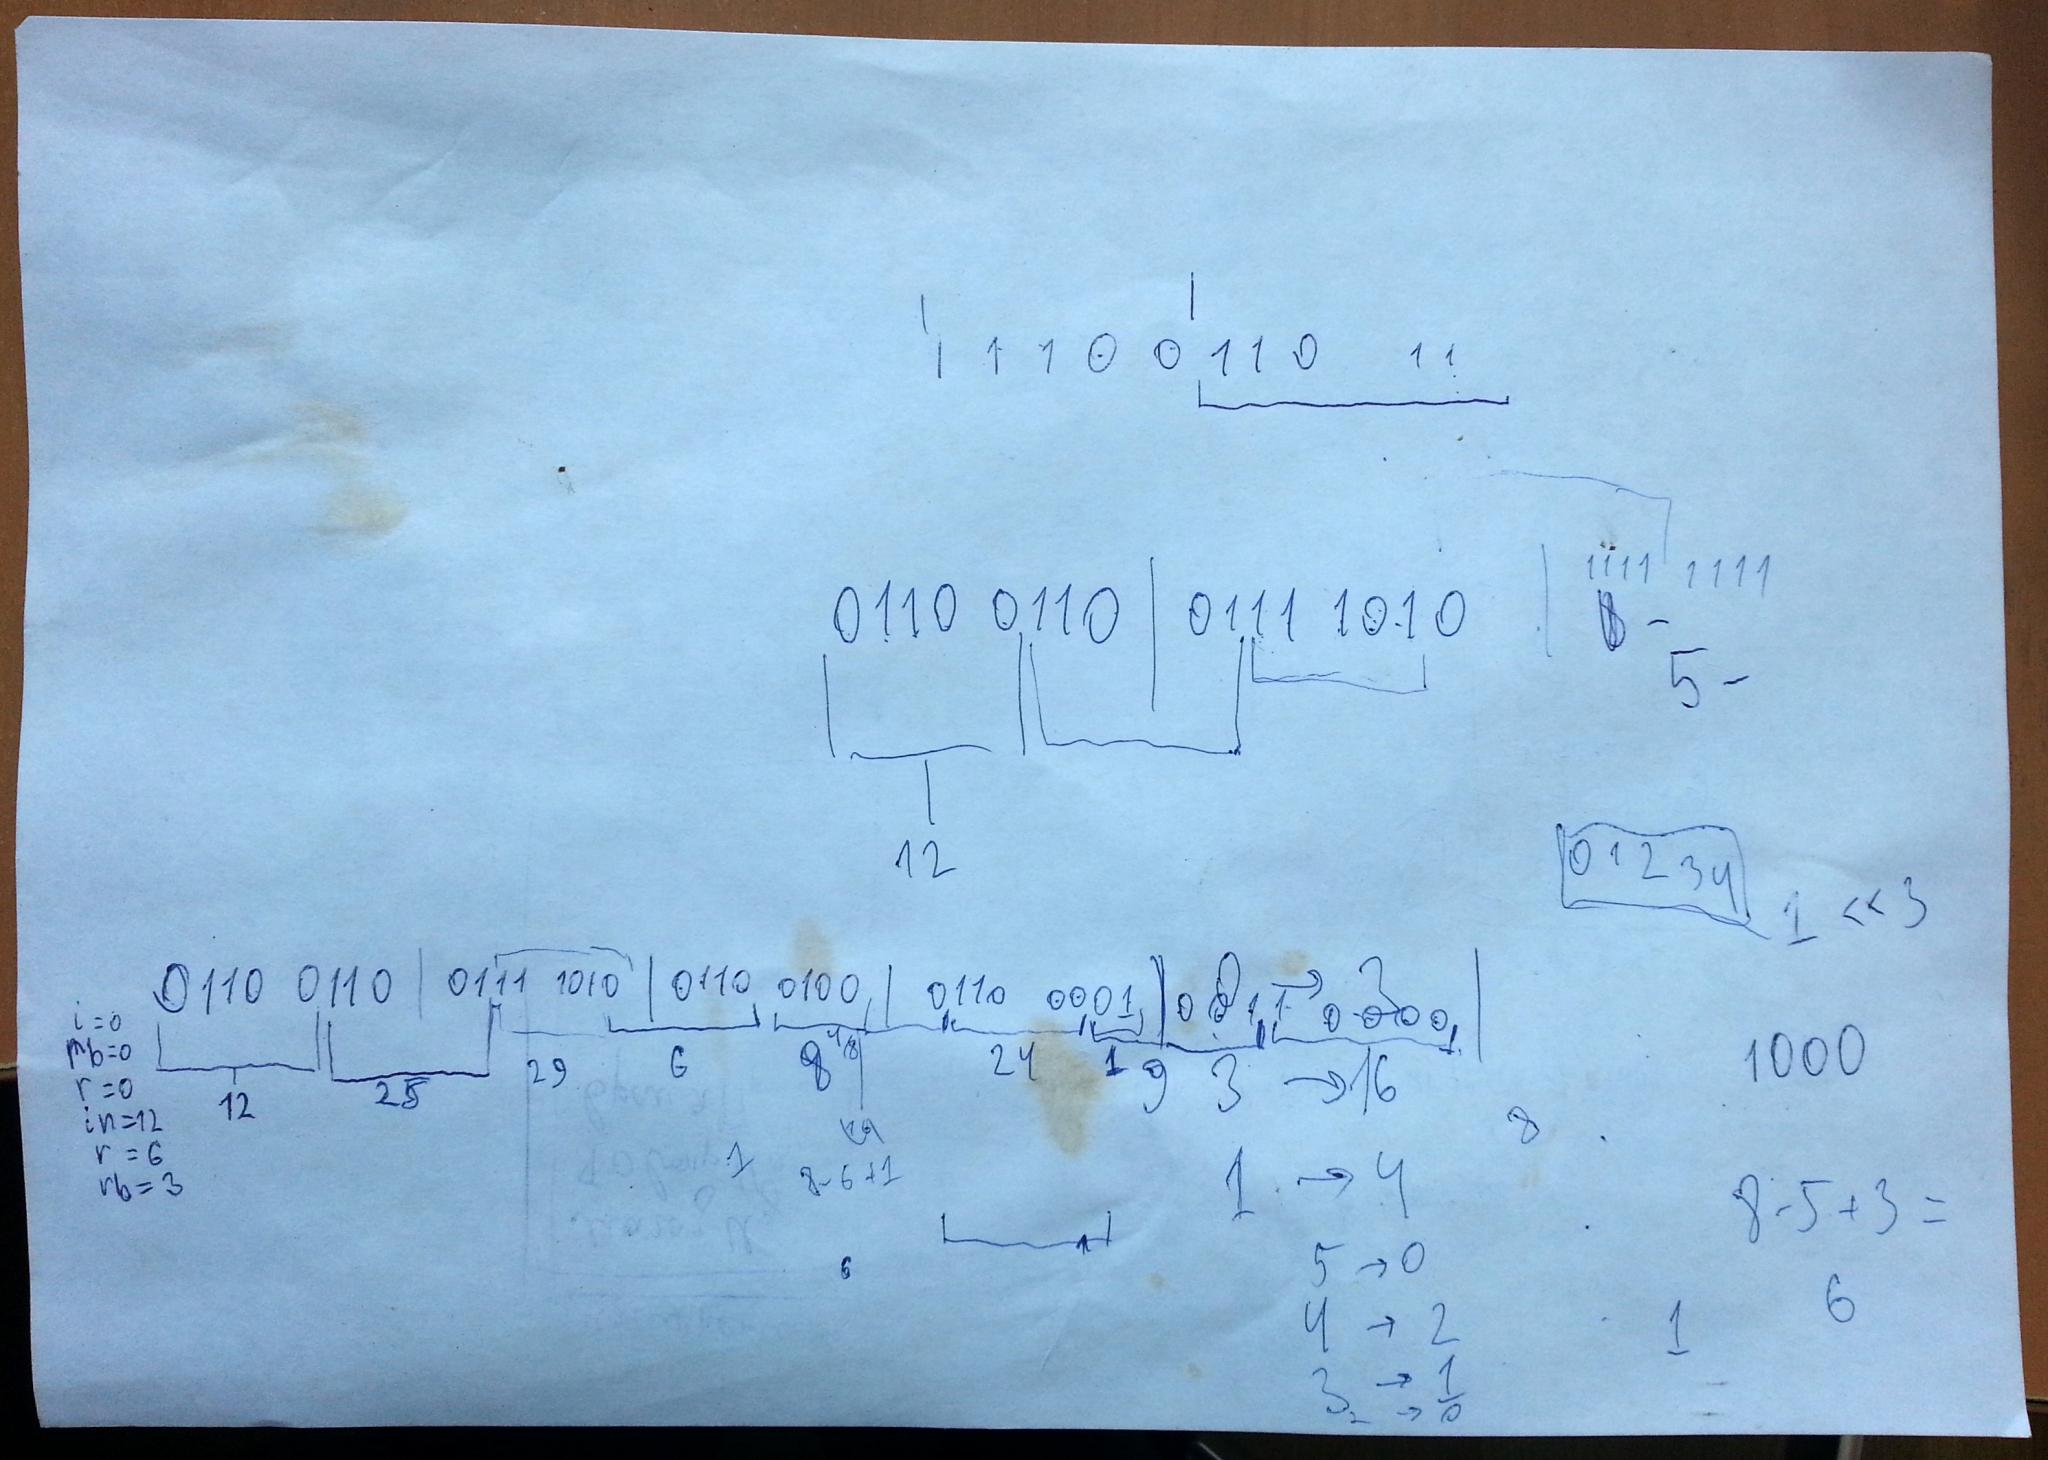 1 1 1 0 0 1 1 0 1 1
1111 1111
0110 0110 | 0111 1010 |
5 -
12
0 1 2 3 4
1 << 3
0110 0110 | 0111 1010 | 0110 0100 | 0110 0001 |
i=0
r=0
in=12
r=6
rb=3
12 25 29 6 8 24 1 9 3 → 16
1000
8
1 8-6+1 1 → 4
8-5+3=
6 5 → 0
6
4 → 2 1
3 → 1
2 → 0